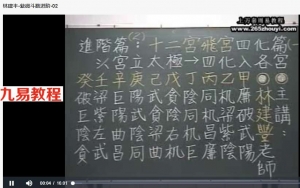 林建丰-紫微斗数进阶-02
www.265zhouyi.com
九易教程
進階篇:十二宮飛宮四化
主講:林建豐老師
癸壬辛庚己戊丁丙乙甲
破梁巨陽武貪陰同机廉
巨紫陽武貪陰同机梁破
陰左曲陰梁右机昌紫武
貪武昌同曲机巨廉陰陽
00:04